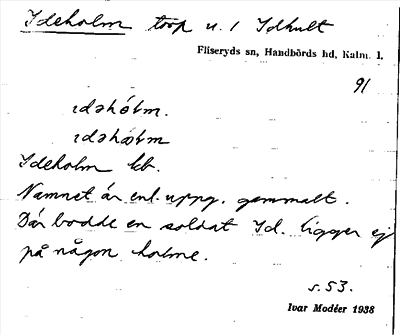 Ideholm torp u. 1 Idhult
Fliseryds sn, Handbörds hd, Kalm. l.
91
ıdəhól̵m.
ıdəhɷl̵m
Ideholm kb.
Namnet är enl. uppg. gammalt.
Där bodde en soldat Id. ligger ej
på någon holme.
s. 53.
Ivar Modéer 1938